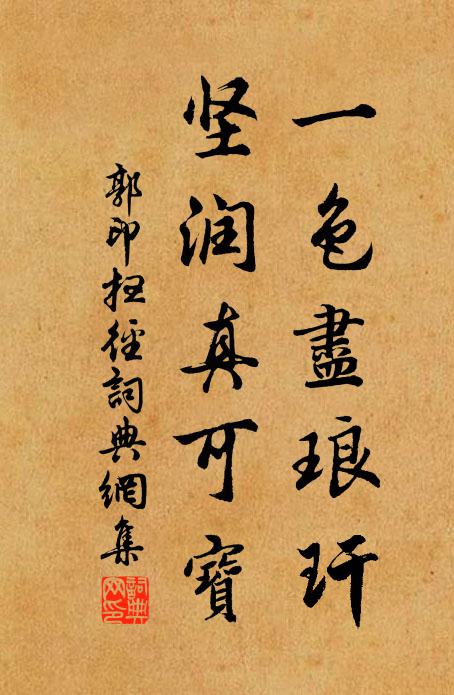 一色盡琅玕
坚润真可寶
郭印抂徑詞典網集
詞典網印